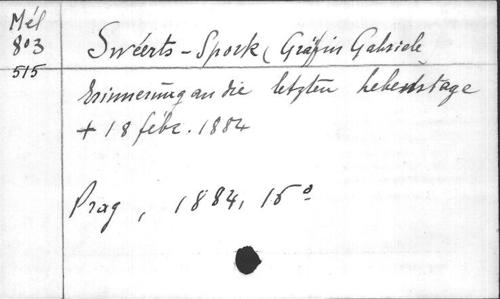 Mél
803
515
Swéerts-Spork (Gräfin Gabriele
Erinnerung an die letzten Lebenstage
+ 18 febr. 1884
Prag, 1884, 16°